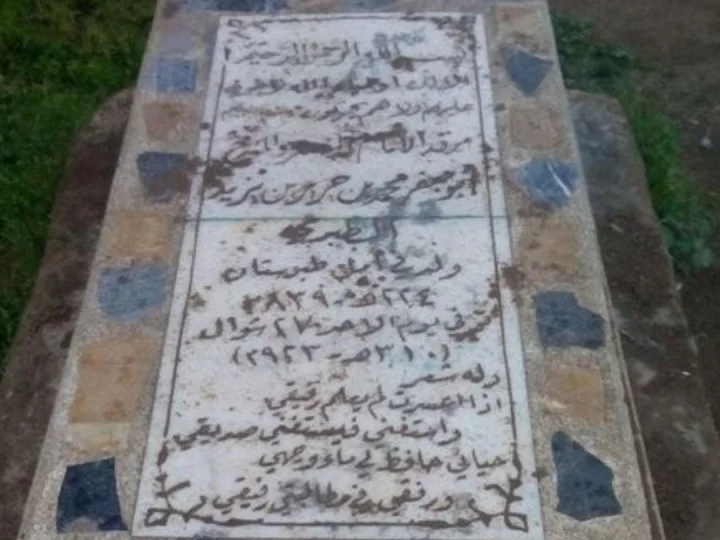 بسم الله الرحمن الرحيم
الا ان اولياء الله لا خوف
عليهم ولا هم يحزنون
مرقد الامام المفسر والمؤرخ
ابو جعفر محمد بن جرير بن يزيد
الطبري
ولد في آمل طبرستان
٢٢٤هـ - ٨٣٩م
توفي يوم الاحد ٢٧ شوال
(٣١٠هـ - ٩٢٣م)
وله شعر
اذا اعسرت لم يعلم رفيقي
واستغني فيستغني صديقي
حيائي حافظ لي ماء وجهي
ورفقي في مطالبتي رفيقي